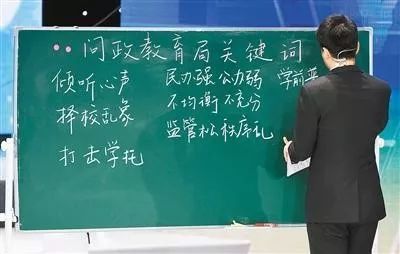 问政教育局关键词
倾听心声 民办强公办弱 学前
择校乱象 不均衡 不充分
监管松秩序乱
打击学托